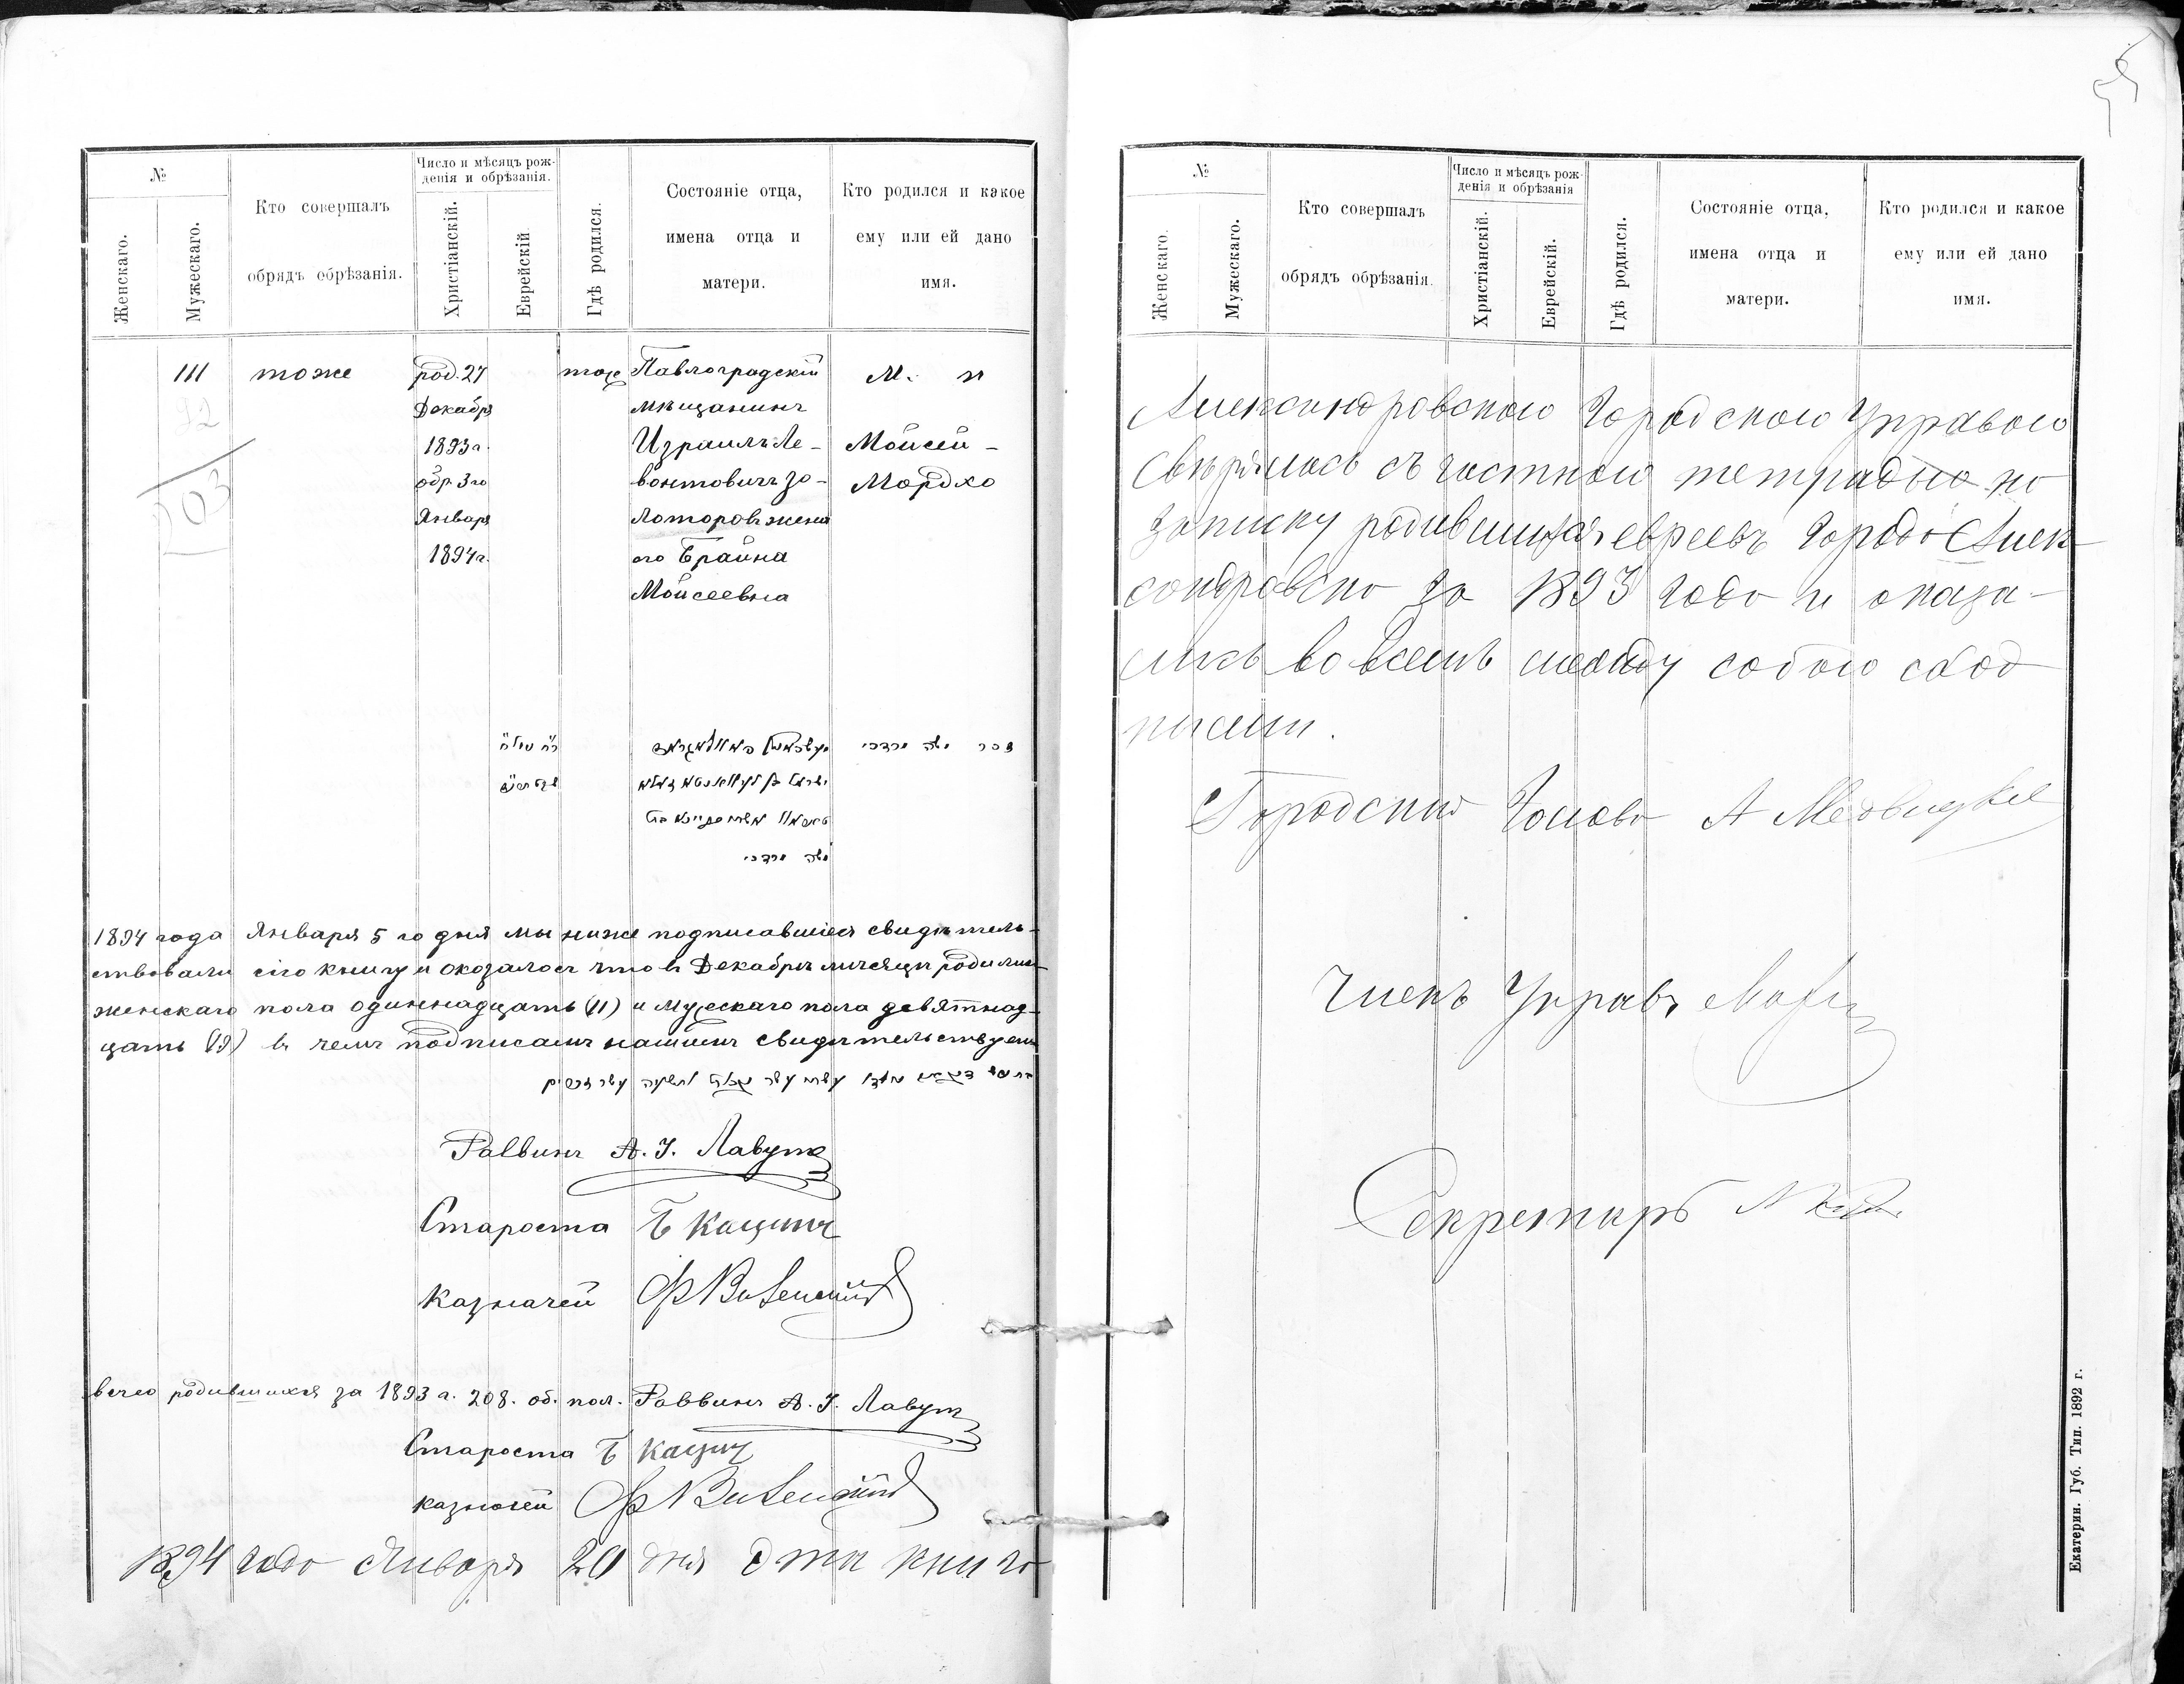 №
Женскаго.
Мужескаго.
Кто совершалъ
обрядъ обрѣзанія.
Число и мѣсяцъ рож-
денія и обрѣзанія.
Христіанскій.
Еврейскій.
Гдѣ родился.
Состояніе отца,
имена отца и
матери.
Кто родился и какое
ему или ей дано
имя.
111
92
203
тоже
род. 27
Декабря
1893 г.
обр 3го
Января
1894 г.
тоже
Павлоградскій
мѣщанинъ
Израиль Ле-
вонтовичъ Зо-
лоторовъ жена
его Брайна
Мойсеевна
М. п
Мойсей-
Мордхо
זכר משה מרדכי
משה מרדכי
1894 года Января 5 го дня мы ниже подписавшіеся свидѣтель-
ствовали сію книгу и оказалось что въ Декабрѣ мѣсяцѣ родились
женскаго пола одиннадцать (11) и Мужескаго пола девятнад-
цать (19) въ чемъ подписомъ нашимъ свидѣтельствуемъ
Раввинъ А. I. Лавутъ
Староста Б Кацинъ
Казначей
всего родившихся за 1893 г. 208. об. пол. Раввинъ А. I. Лавутъ
Староста Б Кацинъ
казначей
1894 года Января 20 дня Эта книга
№
Женскаго.
Мужескаго.
Кто совершалъ
обрядъ обрѣзанія.
Число и мѣсяцъ рож-
денія и обрѣзанія
Христіанскій.
Еврейскій.
Гдѣ родился.
Состояніе отца,
имена отца и
матери.
Кто родился и какое
ему или ей дано
имя.
Александровскою Городскою Управою
свѣрялась съ частною тетрадью по
записку родившихся евреевъ города Алек-
сандровска за 1893 года и оказа-
лись во всемъ между собою сход
ными.
Городской Голова А
Членъ Управы
Секретарь
Екатерин. Губ. Тип. 1892 г.